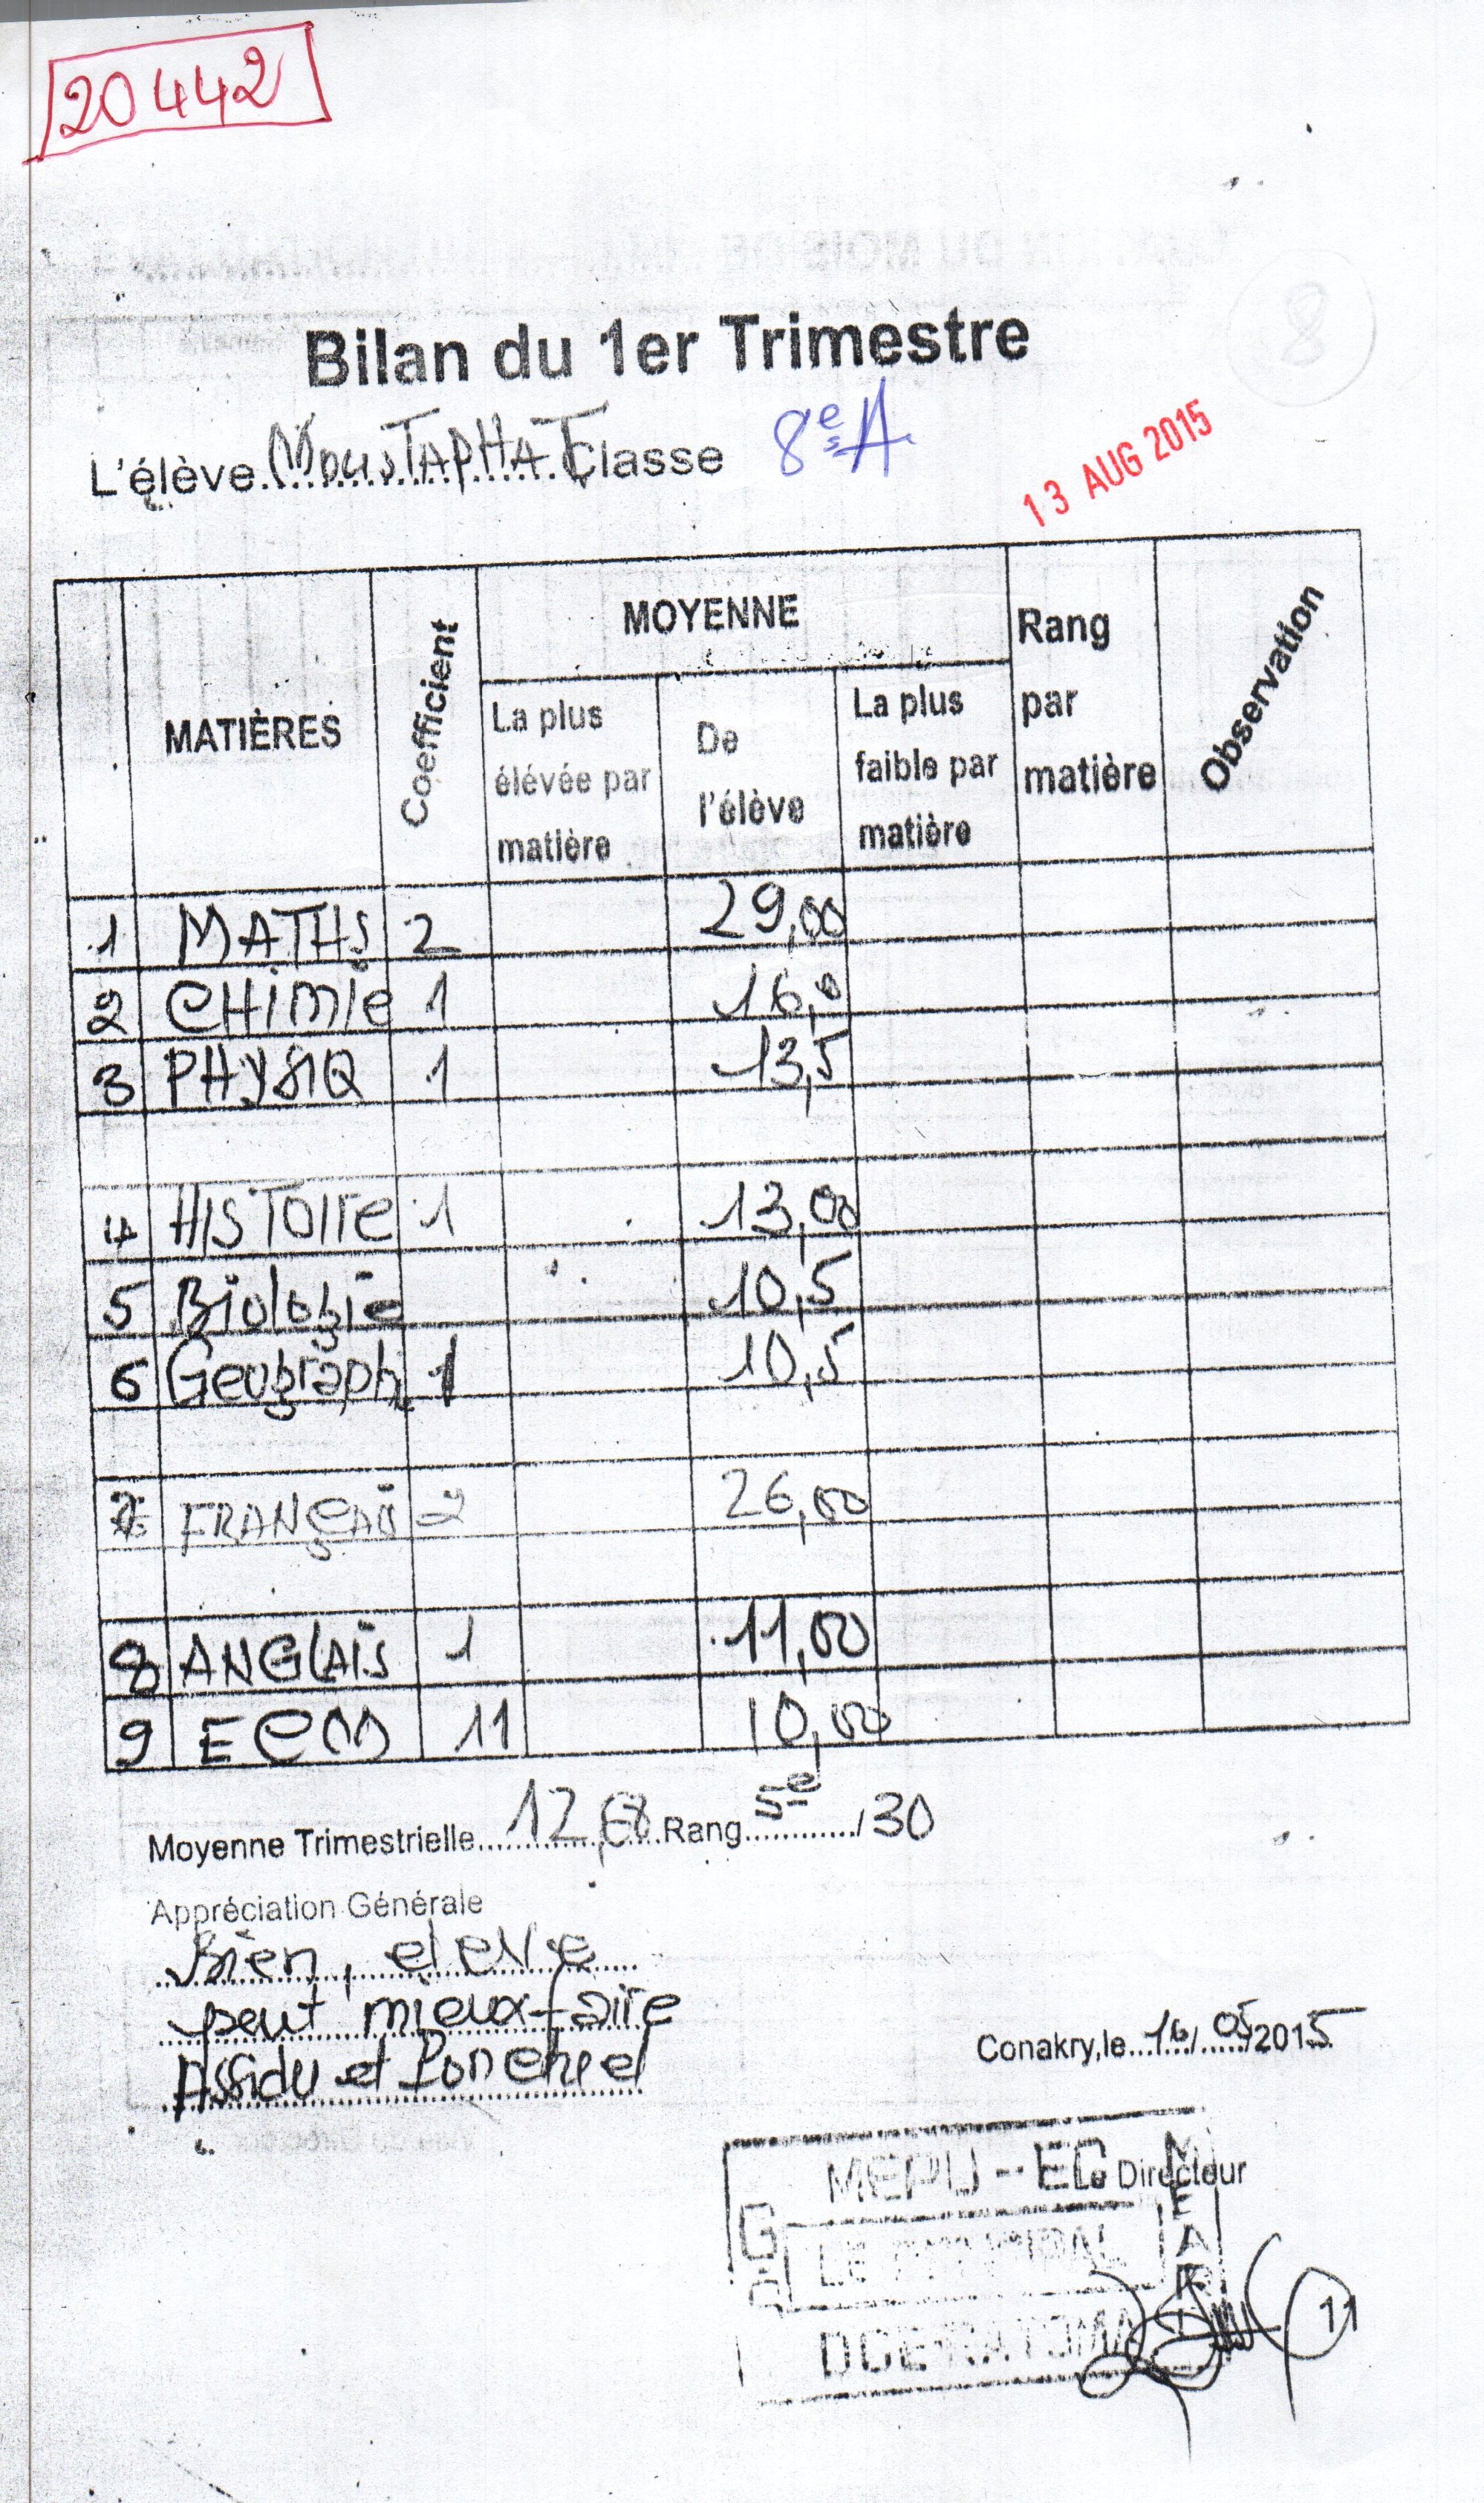 20442
Bilan du 1er Trimestre
L'élève MOUSTAPHA T Classe 8e A
13 AUG 2015
MATIÈRES Coefficient MOYENNE Rang par matière Observation
La plus élévée par matière De l'élève La plus faible par matière
1 MATHS 2 29,00
2 CHIMIE 1 16,0
3 PHYSIQ 1 13,5
4 HISTOIRE 1 13,00
5 Biologie 10,5
6 Geograph 1 10,5
7 FRANÇAIS 2 26,00
8 ANGLAIS 1 11,00
9 ECM 11 10,00
Moyenne Trimestrielle 12,68 Rang 5e /30
Appréciation Générale
Bien, eleve
peut mieux faire
Assidu et Ponctuel
Conakry,le 16/05/2015
MEPU-EC Le Directeur
LE PRINCIPAL
DCE RATOMA
11